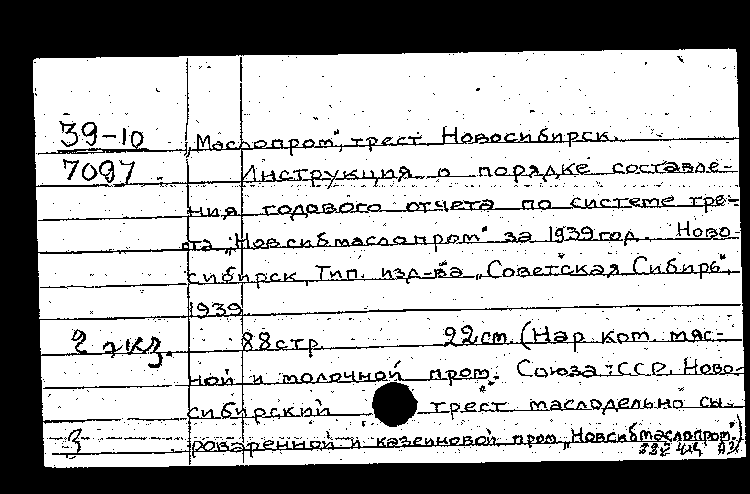 39-10
7097
„Маслопром", трест Новосибирск.
Инструкция о порядке составле-
ния годового отчета по системе тре-
ста „Новсибмаслопром" за 1939 год. Ново-
сибирск, Тип. изд-ва „Советская Сибирь",
1939
2 экз. 88 стр. 22 см. (Нар. ком. мяс-
ной и молочной пром. Союза ССР. Ново-
сибирский трест маслодельно сы-
3 роваренной и казеиновой пром „Новсибмаслопром")